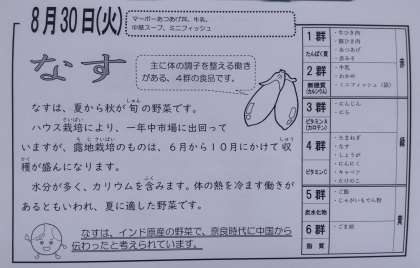 8月30日(火)
マーボーあつあげ丼、牛乳、
中華スープ、ミニフィッシュ
なす
主に体の調子を整える働き
がある、4群の食品です。
なすは、夏から秋が旬の野菜です。
ハウス栽培により、一年中市場に出回って
いますが、露地栽培のものは、6月から10月にかけて収
穫が盛んになります。
水分が多く、カリウムを含みます。体の熱を冷ます働きが
あるともいわれ、夏に適した野菜です。
なすは、インド原産の野菜で、奈良時代に中国から
伝わったと考えられています。
1群
たんぱく質
・牛ひき肉
・豚ひき肉
・あつあげ
・赤みそ
2群
無機質
(カルシウム)
・牛乳
・わかめ
・ミニフィッシュ
赤
3群
ビタミンA
(カロテン)
・にんじん
・にら
4群
ビタミンC
・たまねぎ
・なす
・しょうが
・にんにく
・キャベツ
・たけのこ
緑
5群
炭水化物
・ご飯
・じゃがいもでん粉
6群
脂質
・ごま油
黄